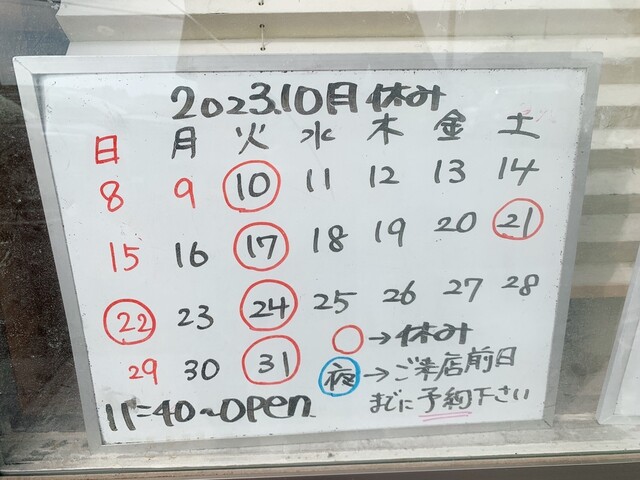 2023.10月休み
日 月 火 水 木 金 土
8 9 10 11 12 13 14
15 16 17 18 19 20 21
22 23 24 25 26 27 28
29 30 31
○→休み
夜→ご来店前日
までに予約下さい
11:40~OPEN